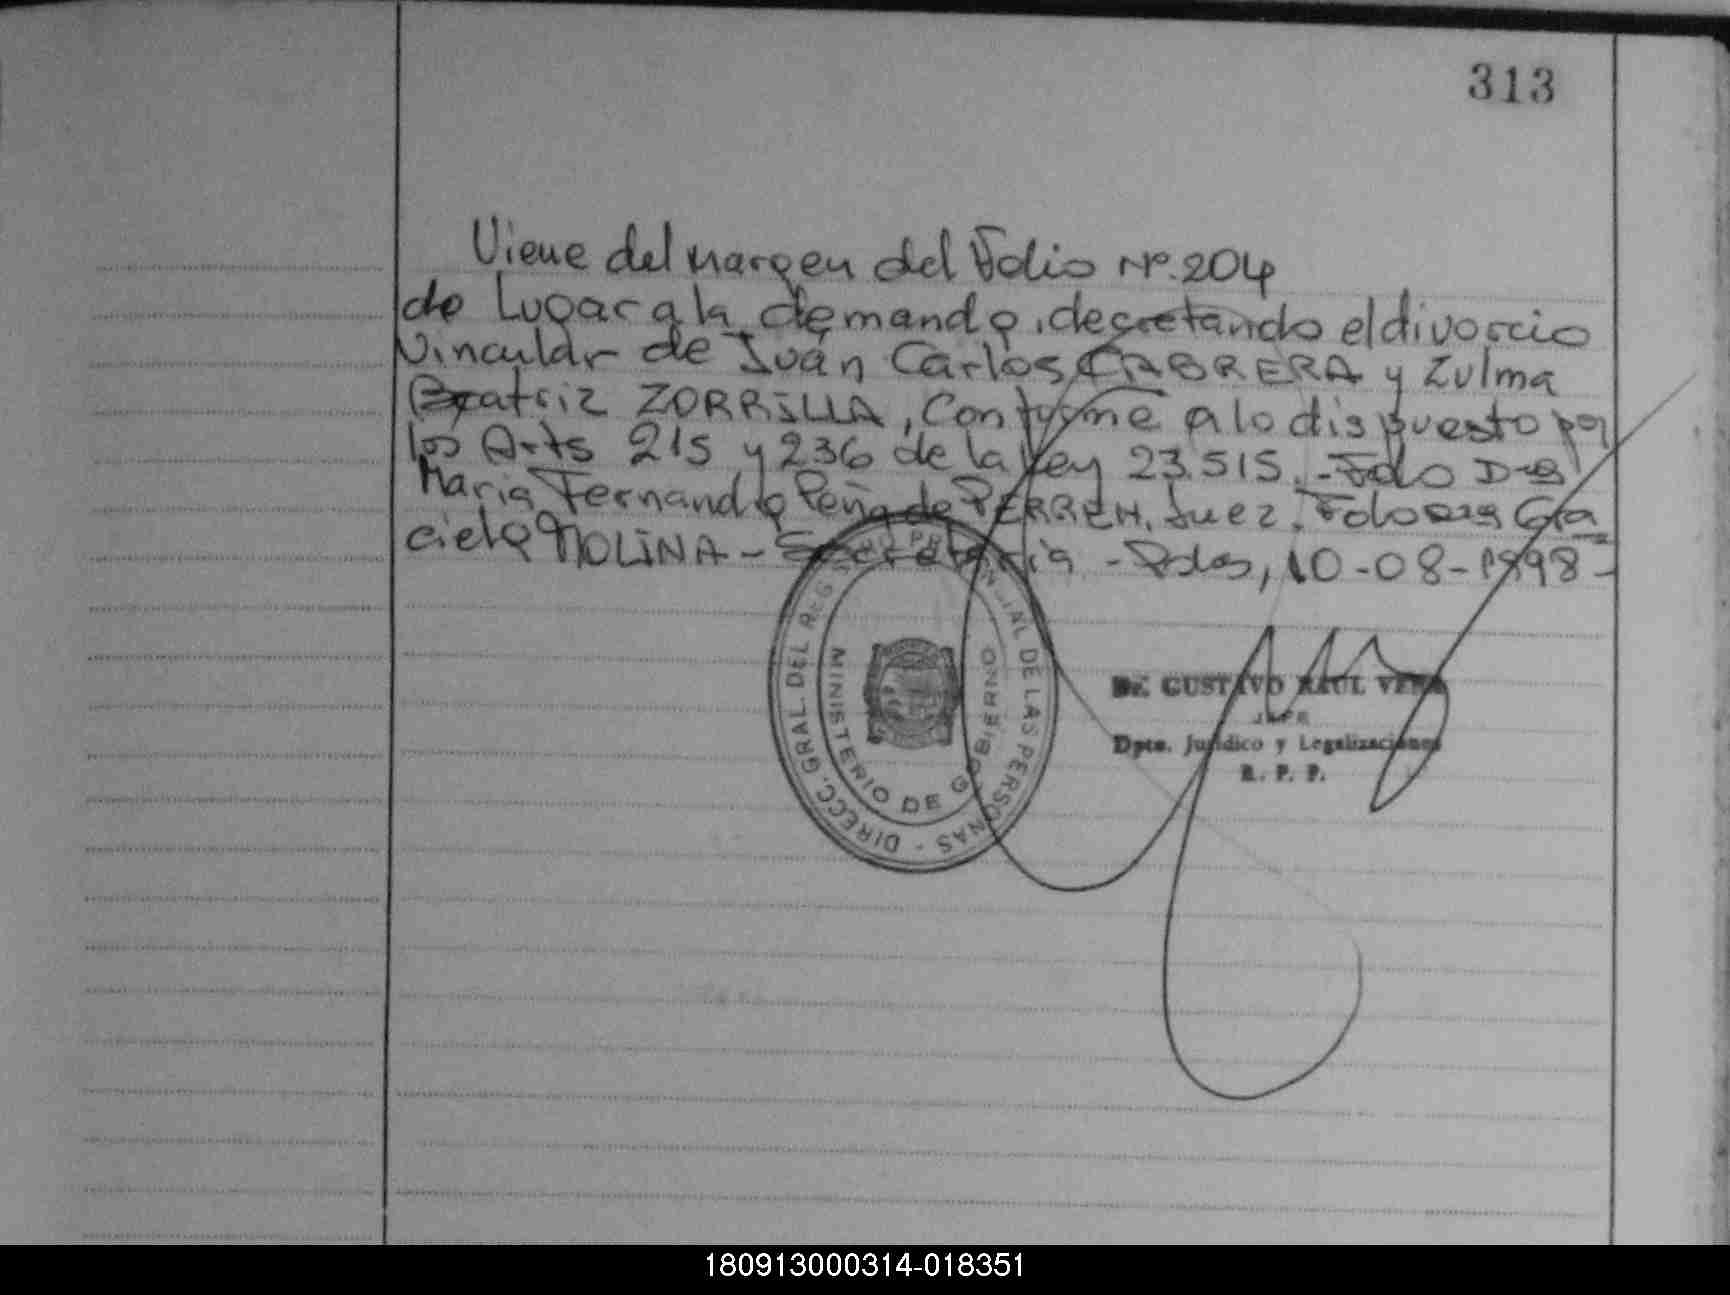 313
Viene del margen del Folio Nº.204
do Lugar a la demanda, decretando el divorcio
Vincular de Juan Carlos CABRERA y Zulma
Beatriz ZORRILLA, Conforme a lo dispuesto por
los Arts 215 y 236 de la Ley 23.515.-Fdo Dra
Maria Fernanda Peña de PERREN, Juez. Fdo Dra Gra
ciela MOLINA - Secretaria - Pdas, 10-08-1998-
DIRECC. GRAL. DEL REG PROVINCIAL DE LAS PERSONAS -
MINISTERIO DE GOBIERNO
Dr. GUSTAVO RAUL VERA
JEFE
Dpto. Jurídico y Legalizaciones
R. P. P.
180913000314-018351